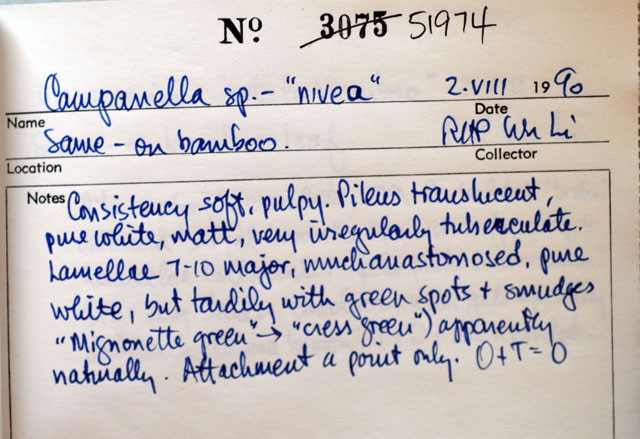 Nº 3075 51974
Campanella sp. - "nivea" 2.VIII 1990
Name Date
Same - on bamboo.
Location Collector
Notes Consistency soft, pulpy. Pileus translucent,
pure white, matt, very irregularly tuberculate.
Lamellae 7-10 major, much anastomosed, pure
white, but tardily with green spots + smudges
"Mignonette green" → "cress green") apparently
naturally. Attachment a point only. O+T = O